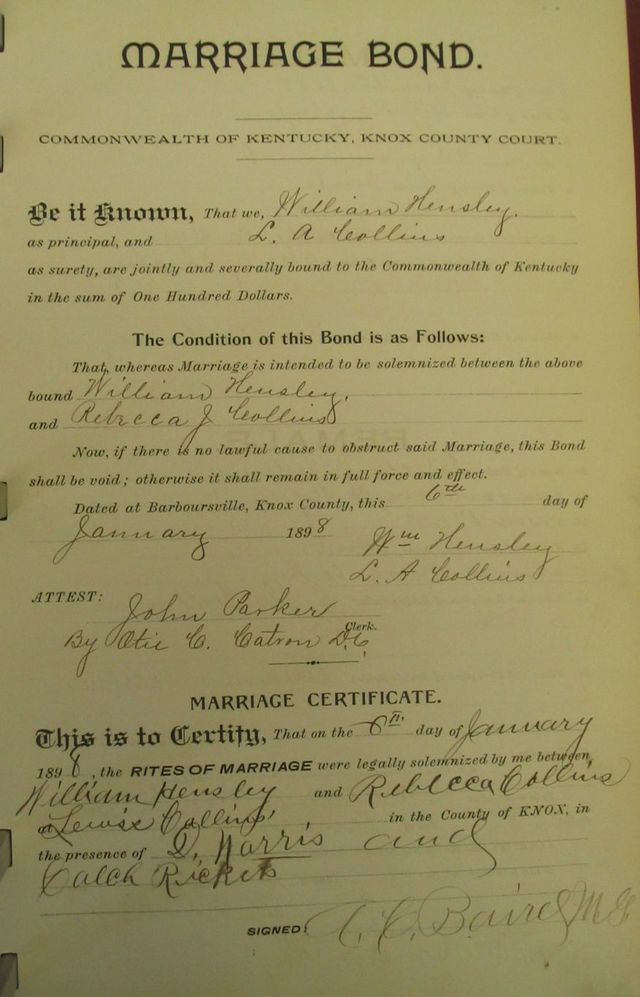 MARRIAGE BOND.
COMMONWEALTH OF KENTUCKY, KNOX COUNTY COURT.
Be it Known, That we, William Hensley.
as principal, and L. A Collins
as surety, are jointly and severally bound to the Commonwealth of Kentucky
in the sum of One Hundred Dollars.
The Condition of this Bond is as Follows:
That, whereas Marriage is intended to be solemnized between the above
bound William Hensley,
and Rebecca J Collins
Now, if there is no lawful cause to obstruct said Marriage, this Bond
shall be void; otherwise it shall remain in full force and effect.
Dated at Barboursville, Knox County, this 6th day of
January 1898
Wm Hensley
L. A Collins
ATTEST:
John Parker
Clerk.
By Otie C. Catron D.C.
MARRIAGE CERTIFICATE.
This is to Certify, That on the 6th day of January
1898, the RITES OF MARRIAGE were legally solemnized by me between
William Hensley and Rebecca Collins
at Collins' in the County of KNOX, in
the presence of Norris and
Calch Rickets
SIGNED: Baird M G